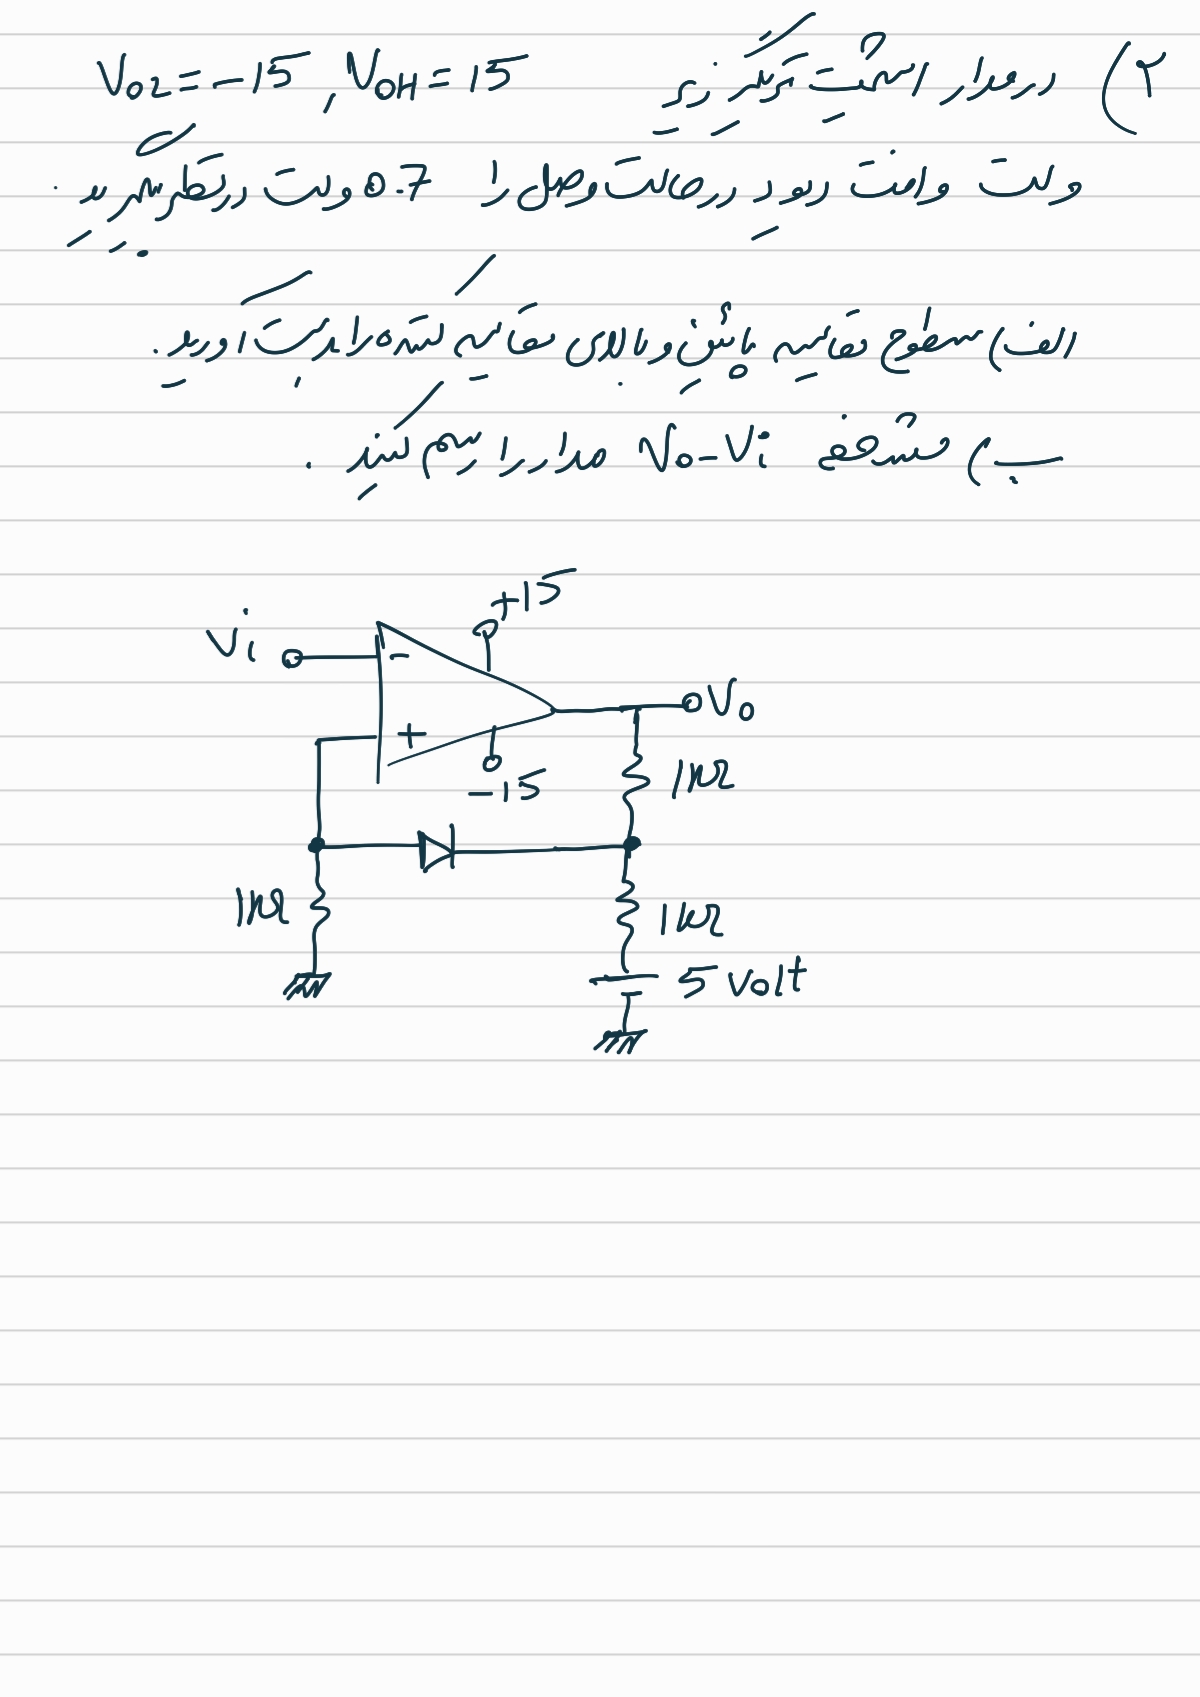 ۲) در مدار اشمیت تریگر زیر VOH = 15 , VO2 = -15
ولت و افت دیود در حالت وصل را 0.7 ولت در نظر بگیرید .
الف) سطوح مقایسه پائین و بالای مقایسه کننده را بدست آورید .
ب) مشخصه Vo-Vi مدار را رسم کنید .
+15
Vi
-
Vo
+
-15
1kΩ
1kΩ
1kΩ
5 volt